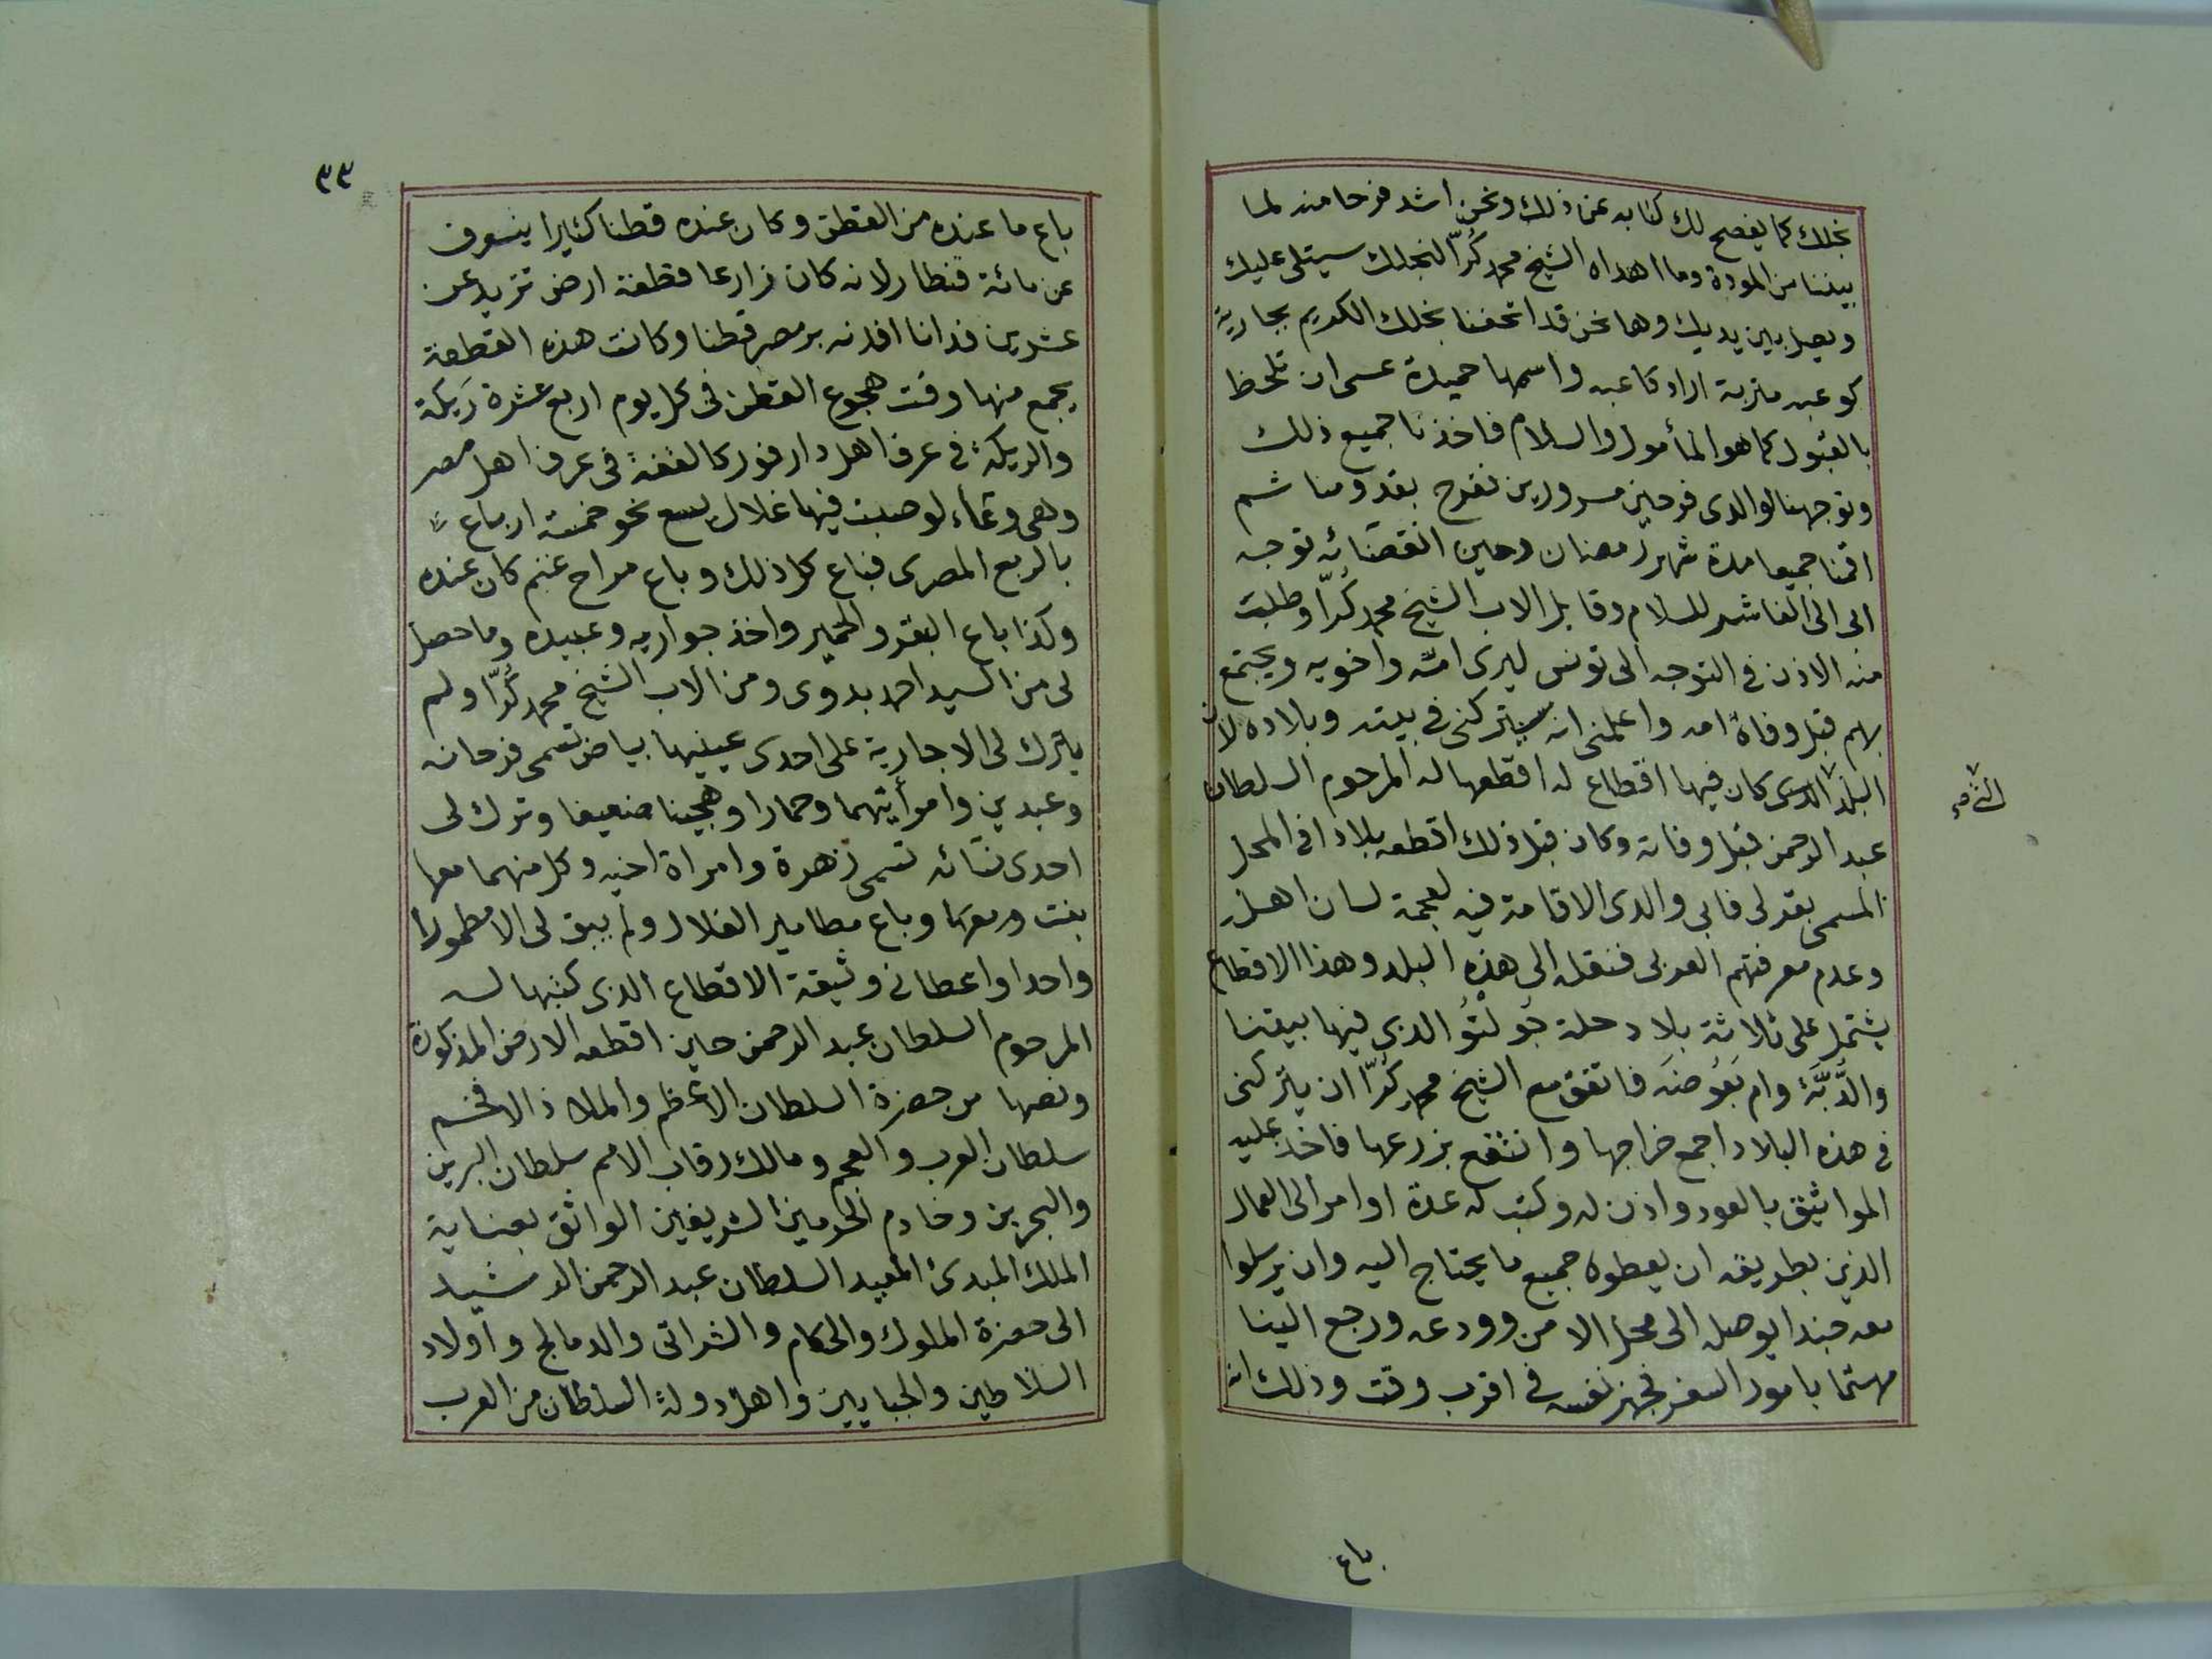 نجلك كما يفصح لك كتابه عن ذلك ونحن اشد فرحا منه لما
بيننا من المودة وما اهداه الشيخ محمد كُرّا لنجلك سيتلى عليك
ويصل بين يديك وها نحن قد اتحفنا نجلك الكريم بجارية
كوعبه متربة اراد كاعبه واسمها حميدة عسى ان تلحظ
بالقبول كما هو المأمول والسلام فاخذنا جميع ذلك
وتوجهنا لوالدى فرحين مسرورين نفرح بقدومنا ثم
اقمنا جميعا مدة شهر رمضان وحين انقضائه توجه
ابى الى الفاشر للسلام وقابل الاب الشيخ محمد كُرّا وطلبت
منه الاذن فى التوجه الى تونس ليرى امّه واخويه ويجتمع
بهم قبل وفاة امه واعلمنى انه سيتركنى فى بيته وبلاده لان
البلد الذى كان فيها اقطاع له اقطعها له المرحوم السلطان
عبد الرحمن قبل وفاته وكان قبل ذلك اقطعه بلادا فى المحل
المسمى بقرلى فابى والدى الاقامة فيه لعجمة لسان اهله
وعدم معرفتهم العربى فنقله الى هذه البلد وهذا الاقطاع
يشتمل على ثلاثة بلاد حلة جُولْتُو الذى فيها بيتنا
والدَّبَّة وام بَعُوضَه فاتفق مع الشيخ محمد كُرّا ان يتركنى
فى هذه البلاد اجمع خراجها وانتفع بزرعها فاخذ عليه
المواثيق بالعود واذن له وكتب له عدة اوامر الى العمال
الذين بطريقه ان يعطوه جميع ما يحتاج اليه وان يرسلوا
معه جندا يوصله الى محل الامن وودعه ورجع الينا
مهتما بامور السفر فجهز نفسه فى اقرب وقت وذلك انه
باع
٣٣
باع ما عنده من القطن وكان عنده قطنا كثيرا ينوف
عن مائة قنطار لانه كان زارعا قطعة ارض تزيد عن
عشرين فدانا افدنه بر مصر قطنا وكانت هذه القطعة
يجمع منها وقت هجوع القطن فى كل يوم اربع عشرة رَيكة
والريكة فى عرف اهل دارفور كالقفة فى عرف اهل مصر
وهى وعاء لو صبت فيها غلال يسع نحو خمسة ارباع
بالربع المصرى فباع كل ذلك وباع مراح غنم كان عنده
وكذا باع البقر والحمير واخذ جواريه وعبيده وما حصل
لى من السيد احمد بدوى ومن الاب الشيخ محمد كُرّا ولم
يترك لى الا جارية على احدى عينيها بياض تسمى فرحانه
وعبدين وامرأتيهما وحمارا وهجينا ضعيفا وترك لى
احدى نسائه تسمى زهرة وامراة اخيه وكل منهما معها
بنت ومعهما وباع مطامير الغلال ولم يبق لى الا مطمورا
واحدا واعطانى وثيقة الاقطاع الذى كتبها له
المرحوم السلطان عبد الرحمن حين اقطعه الارض المذكورة
ونصها من حضرة السلطان الاعظم والملاذ الافخم
سلطان العرب والعجم ومالك رقاب الامم سلطان البرين
والبحرين وخادم الحرمين الشريفين الواثق بعناية
الملك المبدئ المعيد السلطان عبد الرحمن الرشيد
الى حضرة الملوك والحكام والشراتى والدمالج واولاد
السلاطين والجبايين واهل دولة السلطان من العرب